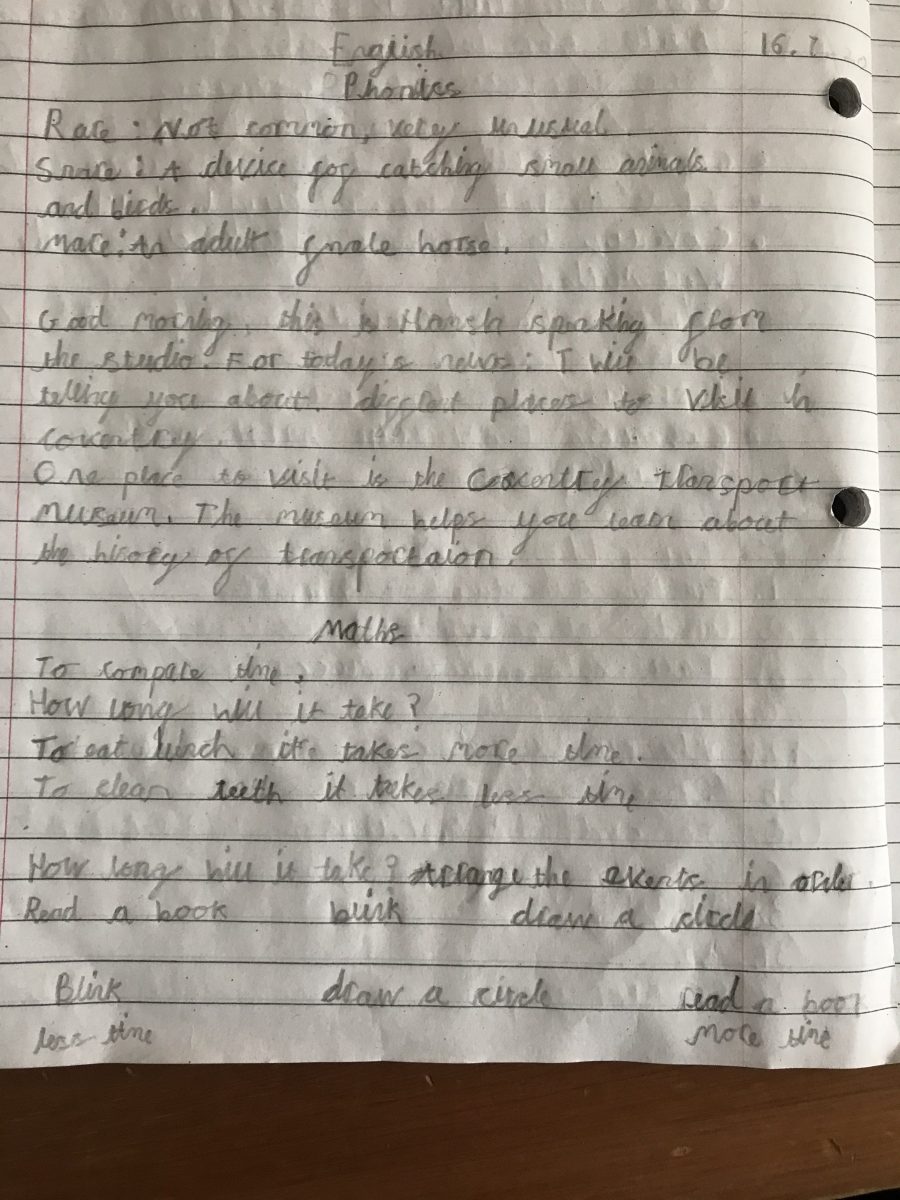 English 16.7
Phonics
Rare : Not common, very unusual.
Snare : A device for catching small animals
and birds.
Mare: An adult fmale horse.
Good morning, this is Hamsh speaking from
the studio. For today's news: I will be
telling you about places to visit in
coventry.
One place to visit is the Coventry transport
museum. The museum helps you learn about
the hisory of transportaion.
Maths
To compare time.
How long will it take?
To eat lunch it takes more time.
To clean teeth it takes less time
How long will it take? Arrange the events in order.
Read a book blink draw a circle
Blink draw a circle read a book
less time more time